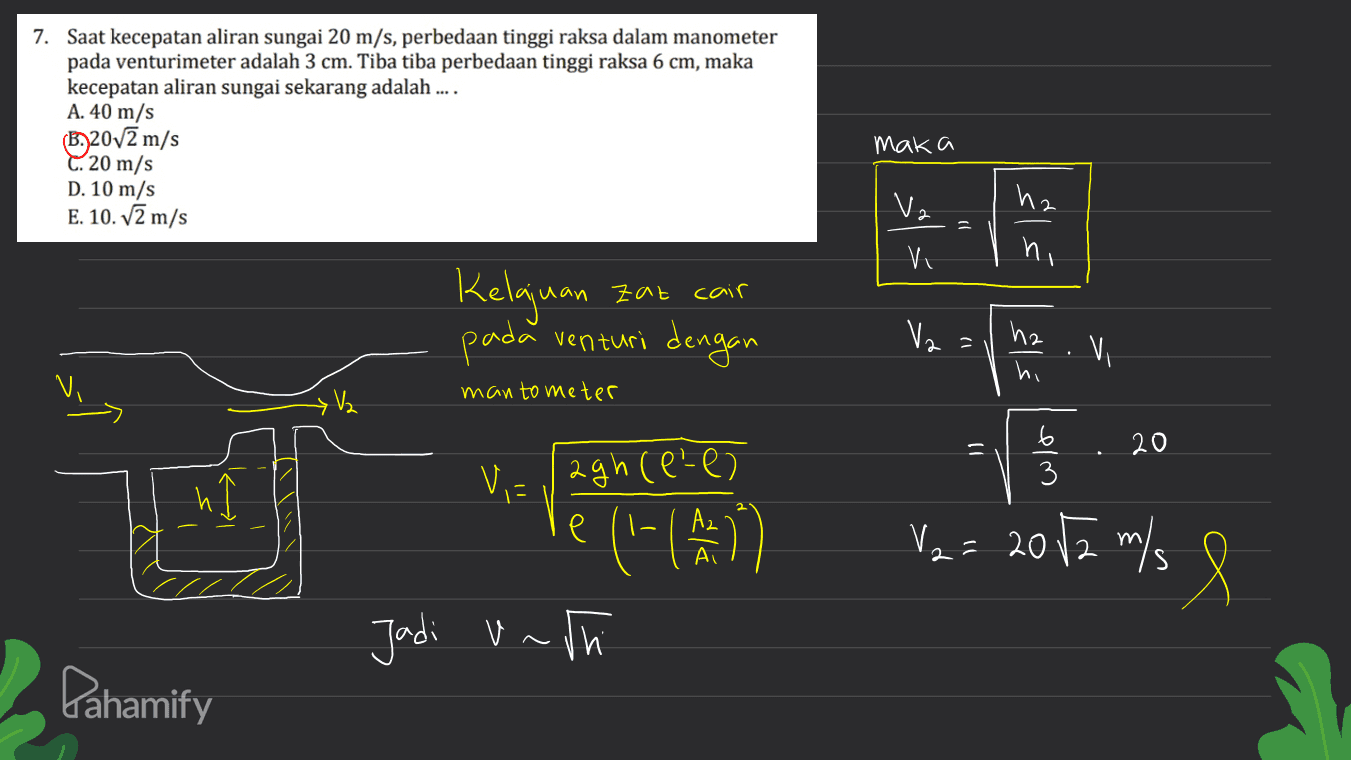 7. Saat kecepatan aliran sungai 20 m/s, perbedaan tinggi raksa dalam manometer
pada venturimeter adalah 3 cm. Tiba tiba perbedaan tinggi raksa 6 cm, maka
kecepatan aliran sungai sekarang adalah ... .
A. 40 m/s
B. 20√2 m/s
C. 20 m/s
D. 10 m/s
E. 10. √2 m/s
V₁
V₂
h
Kelajuan zat cair
pada venturi dengan
mantometer
V₁ = √(2gh(ρ'-ρ) / ρ(1-(A₂/A₁)²))
Jadi v ~ √h
maka
V₂/V₁ = √(h₂/h₁)
V₂ = √(h₂/h₁) . V₁
= √(6/3) . 20
V₂ = 20√2 m/s
Pahamify